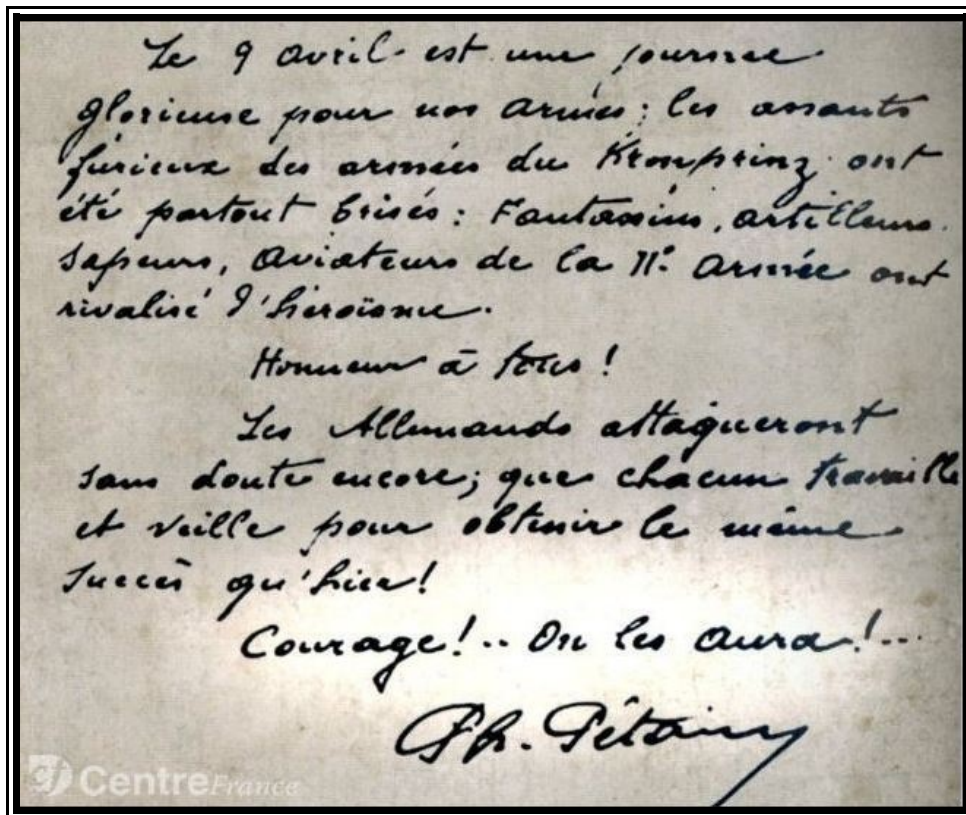 Le 9 avril est une journée
glorieuse pour nos armées ; les assauts
furieux des armées du Kronprinz ont
été partout brisés : Fantassins, artilleurs.
sapeurs, aviateurs de la IIe Armée ont
rivalisé d'héroïsme.
Honneur à tous !
Les Allemands attaqueront
sans doute encore ; que chacun travaille
et veille pour obtenir le même
succès qu'hier !
Courage ! .. On les aura ! ...
Ph. Pétain
CentreFrance